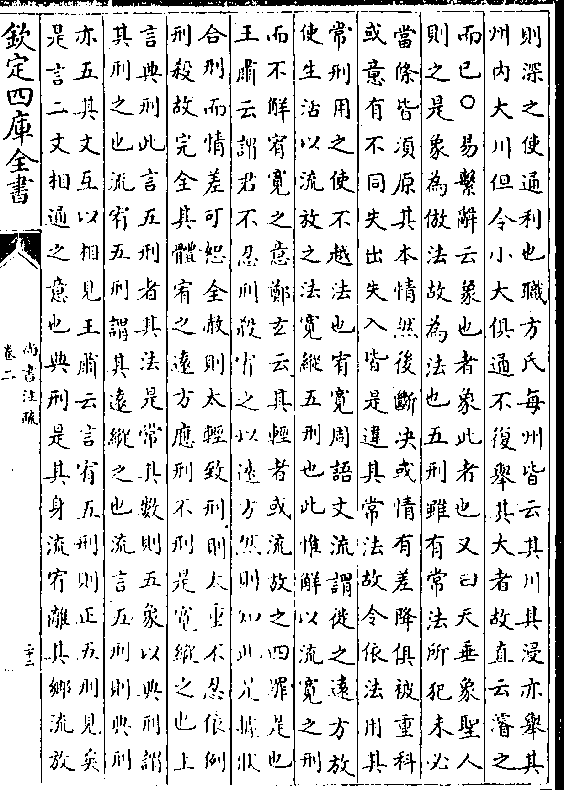 則深之使通利也職方氏每州皆云其川其浸亦舉其
州內大川但令小大俱通不復舉其大者故直云濬之
而已○易繫辭云象也者象此者也又曰天垂象聖人
則之是象為倣法故為法也五刑雖有常法所犯未必
當條皆須原其本情然後斷決或情有差降俱被重科
或意有不同失出失入皆是違其常法故令依法用其
常刑用之使不越法也宥寬周語文流謂徙之遠方放
使生活以流放之法寬縱五刑也此惟解以流寬之刑
而不解宥寬之意鄭玄云其輕者或流放之四罪是也
王肅云謂君不忍刑殺宥之以遠方然則知此是據狀
合刑而情差可恕全赦則太輕致刑則太重不忍依例
刑殺故完全其體宥之遠方應刑不刑是寬縱之也上
言典刑此言五刑者其法是常其數則五象以典刑謂
其刑之也流宥五刑謂其遠縱之也流言五刑則典刑
亦五其文互以相見王肅云言宥五刑則正五刑見矣
是言二文相通之意也典刑是其身流宥離其鄉流放
欽定四庫全書
尚書注疏
卷二